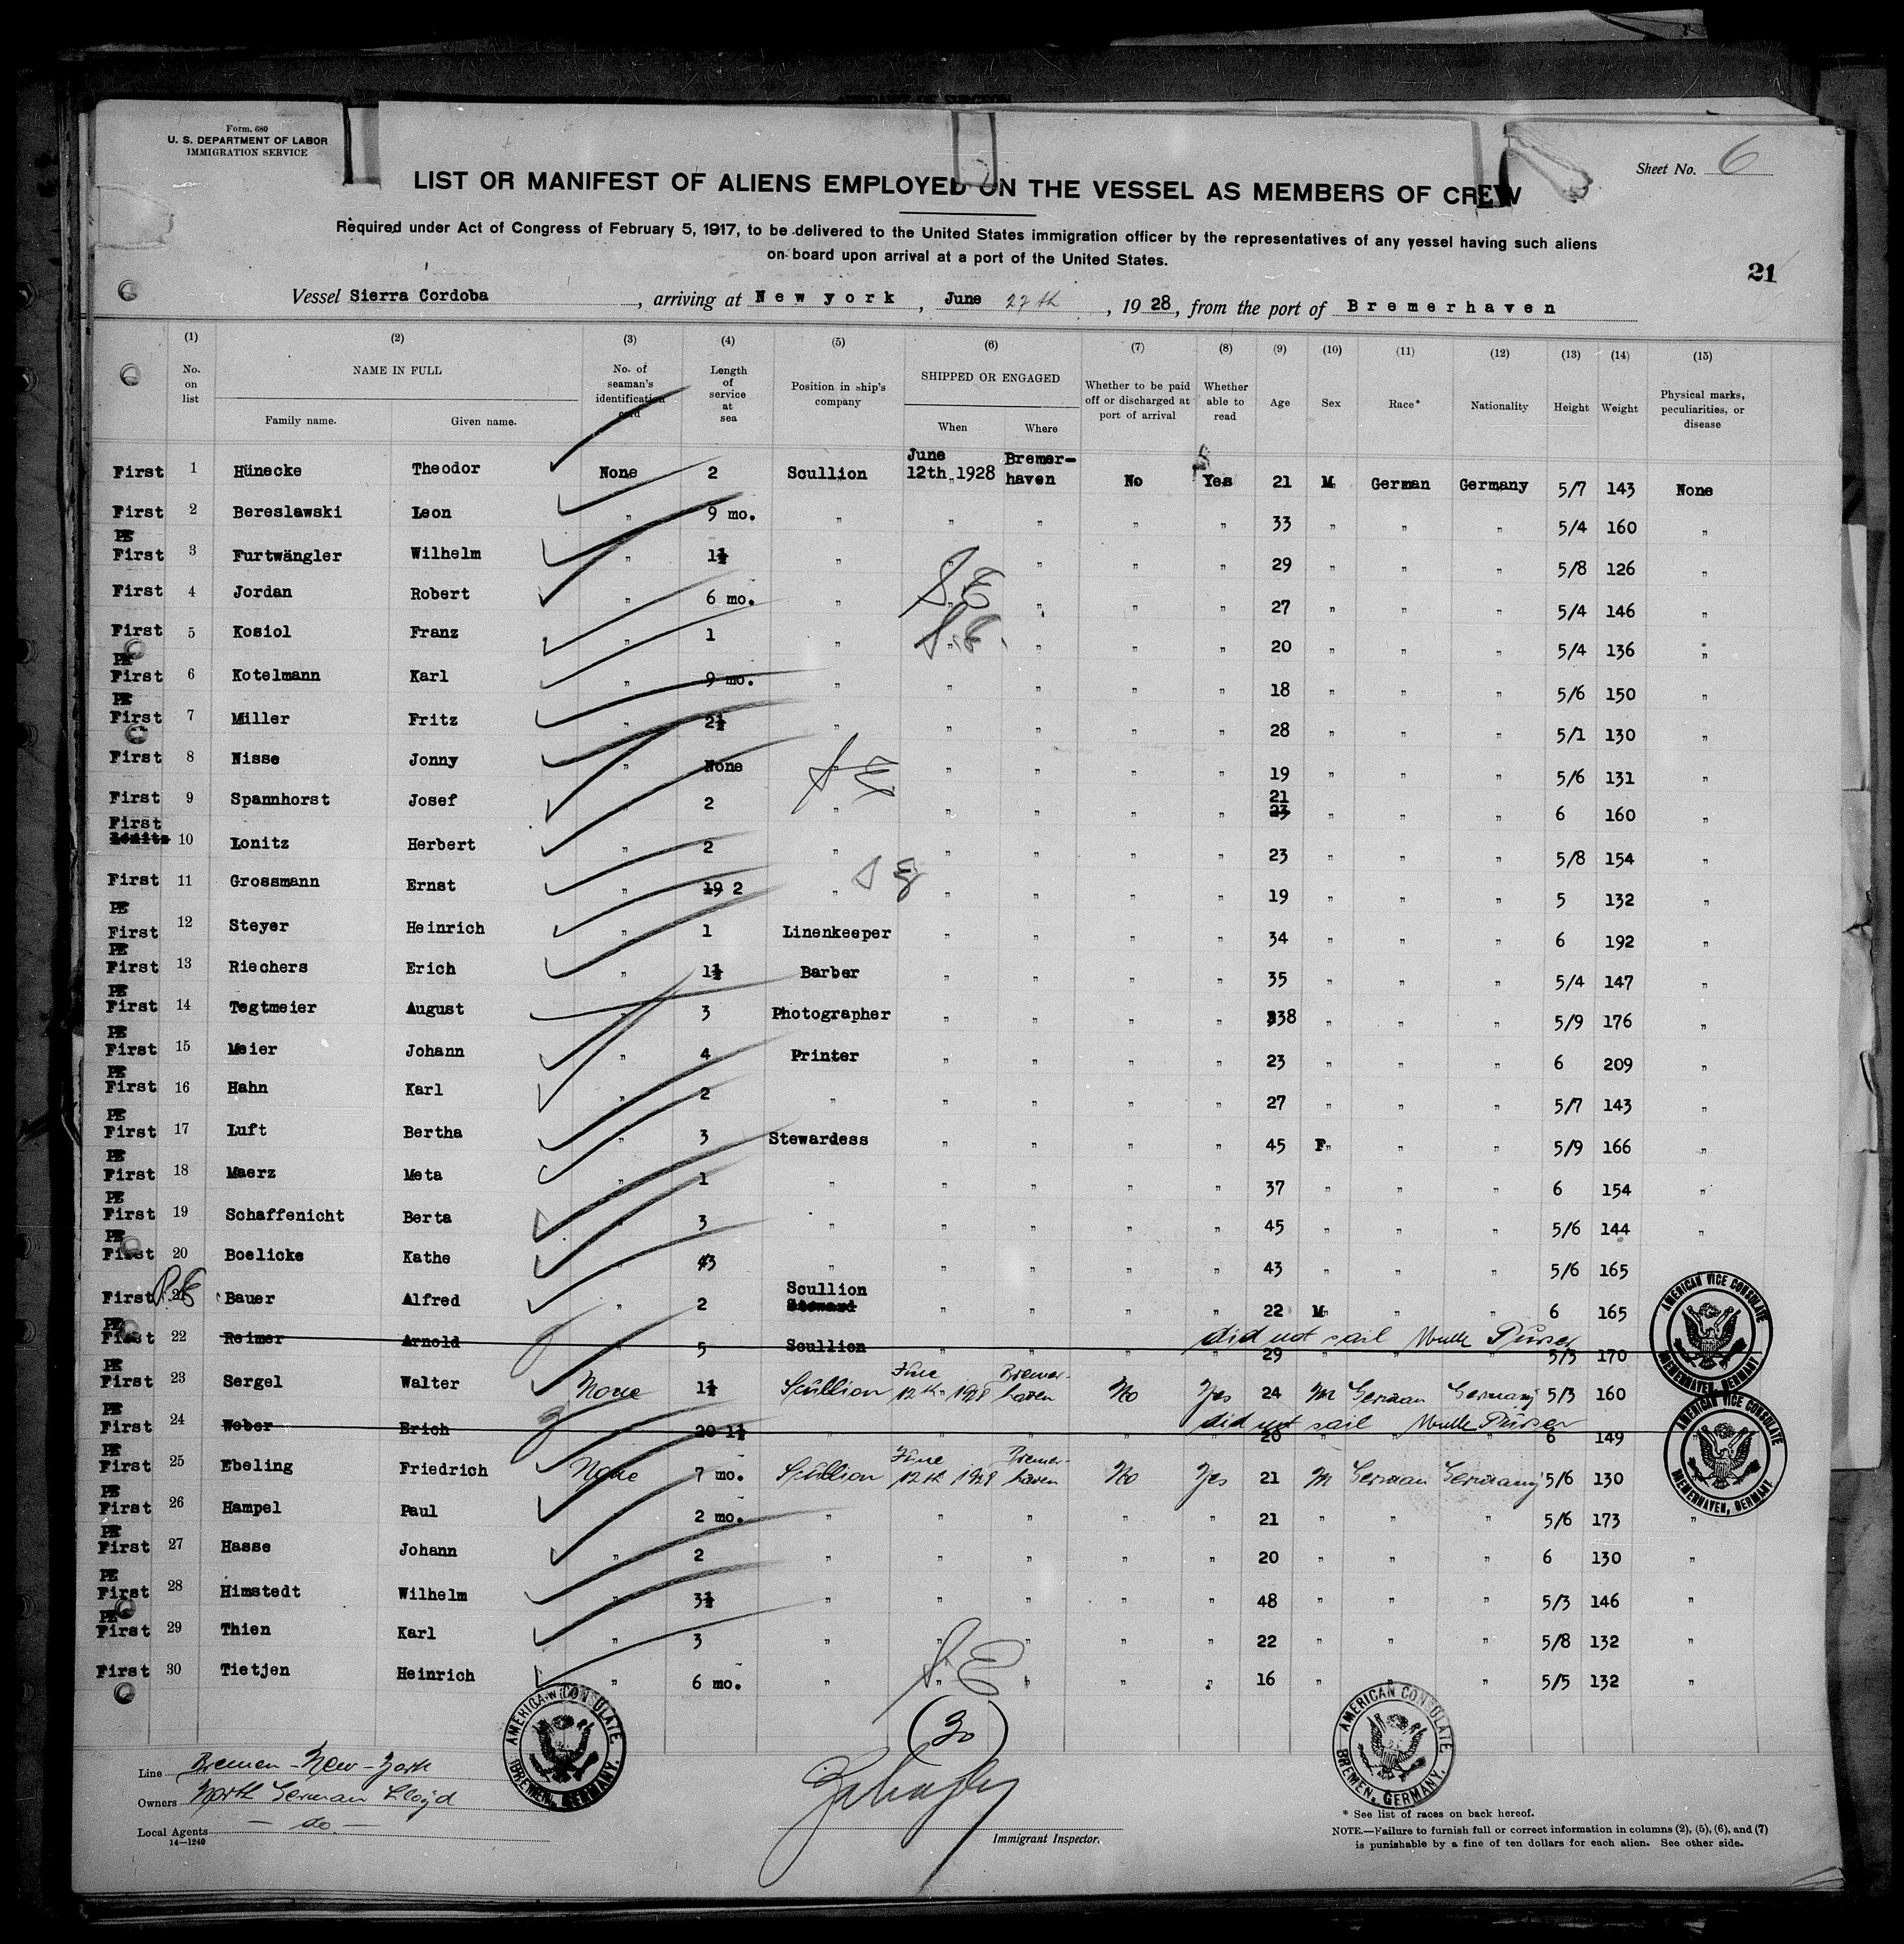 Form. 680
U. S. DEPARTMENT OF LABOR
IMMIGRATION SERVICE
Sheet No. 6
LIST OR MANIFEST OF ALIENS EMPLOYED ON THE VESSEL AS MEMBERS OF CREW
Required under Act of Congress of February 5, 1917, to be delivered to the United States immigration officer by the representatives of any vessel having such aliens
on board upon arrival at a port of the United States.
21
Vessel Sierra Cordoba, arriving at New york, June 27th, 1928, from the port of Bremerhaven
(1) (2) (3) (4) (5) (6) (7) (8) (9) (10) (11) (12) (13) (14) (15)
No. on list NAME IN FULL Family name. Given name. No. of seaman's identification card Length of service at sea Position in ship's company SHIPPED OR ENGAGED When Where Whether to be paid off or discharged at port of arrival Whether able to read Age Sex Race* Nationality Height Weight Physical marks, peculiarities, or disease
First 1 Hünecke Theodor None 2 Scullion June 12th 1928 Bremer-haven No Yes 21 M German Germany 5/7 143 None
First 2 Bereslawski Leon " 9 mo. " " " " " 33 " " " 5/4 160 "
PE First 3 Furtwängler Wilhelm " 1½ " " " " 29 " " " 5/8 126 "
First 4 Jordan Robert " 6 mo. " S.E " " " 27 " " " 5/4 146 "
First 5 Kosiol Franz " 1 " S.E. " " " 20 " " " 5/4 136 "
PE First 6 Kotelmann Karl " 9 mo. " " " " " 18 " " " 5/6 150 "
PE First 7 Miller Fritz " 2½ " " " " " 28 " " " 5/1 130 "
First 8 Nisse Jonny " None SE " " " " 19 " " " 5/6 131 "
First 9 Spannhorst Josef " 2 " " " " " 21 23 " " " 6 160 "
First Lonitz 10 Lonitz Herbert " 2 " " " " " 23 " " " 5/8 154 "
First 11 Grossmann Ernst " 19 2 " SE " " " " 19 " " " 5 132 "
PE First 12 Steyer Heinrich " 1 Linenkeeper " " " " 34 " " " 6 192 "
PE First 13 Riechers Erich " 1½ Barber " " " " 35 " " " 5/4 147 "
PE First 14 Tegtmeier August " 3 Photographer " " " " 38 " " " 5/9 176 "
PE First 15 Meier Johann " 4 Printer " " " " 23 " " " 6 209 "
PE First 16 Hahn Karl " 2 " " " " " 27 " " " 5/7 143 "
PE First 17 Luft Bertha " 3 Stewardess " " " " 45 F " " 5/9 166 "
PE First 18 Maerz Meta " 1 " " " " " 37 " " " 6 154 "
PE First 19 Schaffenicht Berta " 3 " " " " " 45 " " " 5/6 144 "
PE First 20 Boelicke Kathe " 3 " " " " " 43 " " " 5/6 165
P.E First 21 Bauer Alfred " 2 Scullion Steward " " " " 22 M " " 6 165
PE First 22 Reimer Arnold 5 Scullion " " " " 29 " " " 5/3 170 did not sail Purser
PE First 23 Sergel Walter None 1½ Scullion June 12th 1928 Bremer-haven No Yes 24 M German Germany 5/3 160
PE First 24 Weber Erich 20 1½ " " " " " 20 " " " 6 149 did not sail Purser
PE First 25 Ebeling Friedrich None 7 mo. Scullion June 12th 1928 Bremer-haven No Yes 21 M German Germany 5/6 130
PE First 26 Hampel Paul 2 mo. " " " " " 21 " " " 5/6 173 "
PE First 27 Hasse Johann " 2 " " " " " 20 " " " 6 130 "
PE First 28 Himstedt Wilhelm " 3½ " " " " " 48 " " " 5/3 146 "
PE First 29 Thien Karl " 3 " " " " " 22 " " " 5/8 132 "
First 30 Tietjen Heinrich " 6 mo. " S.E " " " 16 " " " 5/5 132 "
AMERICAN VICE CONSULATE BREMERHAVEN, GERMANY.
AMERICAN VICE CONSULATE BREMERHAVEN, GERMANY.
30
AMERICAN CONSULATE BREMEN, GERMANY.
AMERICAN CONSULATE BREMEN, GERMANY.
Line Bremen-New-York
Owners North German Lloyd
Local Agents - do. -
14—1240
Immigrant Inspector.
* See list of races on back hereof.
NOTE.—Failure to furnish full or correct information in columns (2), (5), (6), and (7)
is punishable by a fine of ten dollars for each alien. See other side.